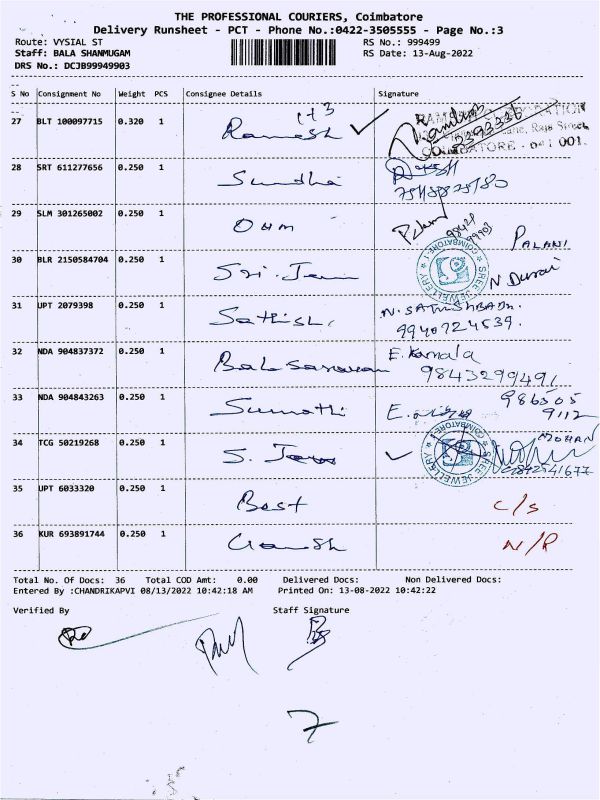 THE PROFESSIONAL COURIERS, Coimbatore
Delivery Runsheet - PCT - Phone No.:0422-3505555 - Page No.:3
Route: VYSIAL ST RS No.: 999499
Staff: BALA SHANMUGAM RS Date: 13-Aug-2022
DRS No.: DCJB99949903
S No Consignment No Weight PCS Consignee Details Signature
27 BLT 100097715 0.320 1 Ramesh 1+3
COIMBATORE - 641 001.
28 SRT 611277656 0.250 1 Sundha
29 SLM 301265002 0.250 1 OHM
PALANI
30 BLR 2150584704 0.250 1 Sri. Jew N Durai
SREE JEWELLERY COIMBATORE-1
31 UPT 2079398 0.250 1 Sathish,
9940724539.
32 NDA 904837372 0.250 1 Balasaravanan E. Kamala
9843299491
33 NDA 904843263 0.250 1 Sumathi 986505
9112
34 TCG 50219268 0.250 1 S. Jews MOHAN
SREE JEWELLERY COIMBATORE-1
9842541677
35 UPT 6033320 0.250 1 Best C/S
36 KUR 693891744 0.250 1 Ganesh N/R
Total No. Of Docs: 36 Total COD Amt: 0.00 Delivered Docs: Non Delivered Docs:
Entered By :CHANDRIKAPVI 08/13/2022 10:42:18 AM Printed On: 13-08-2022 10:42:22
Verified By Staff Signature
7